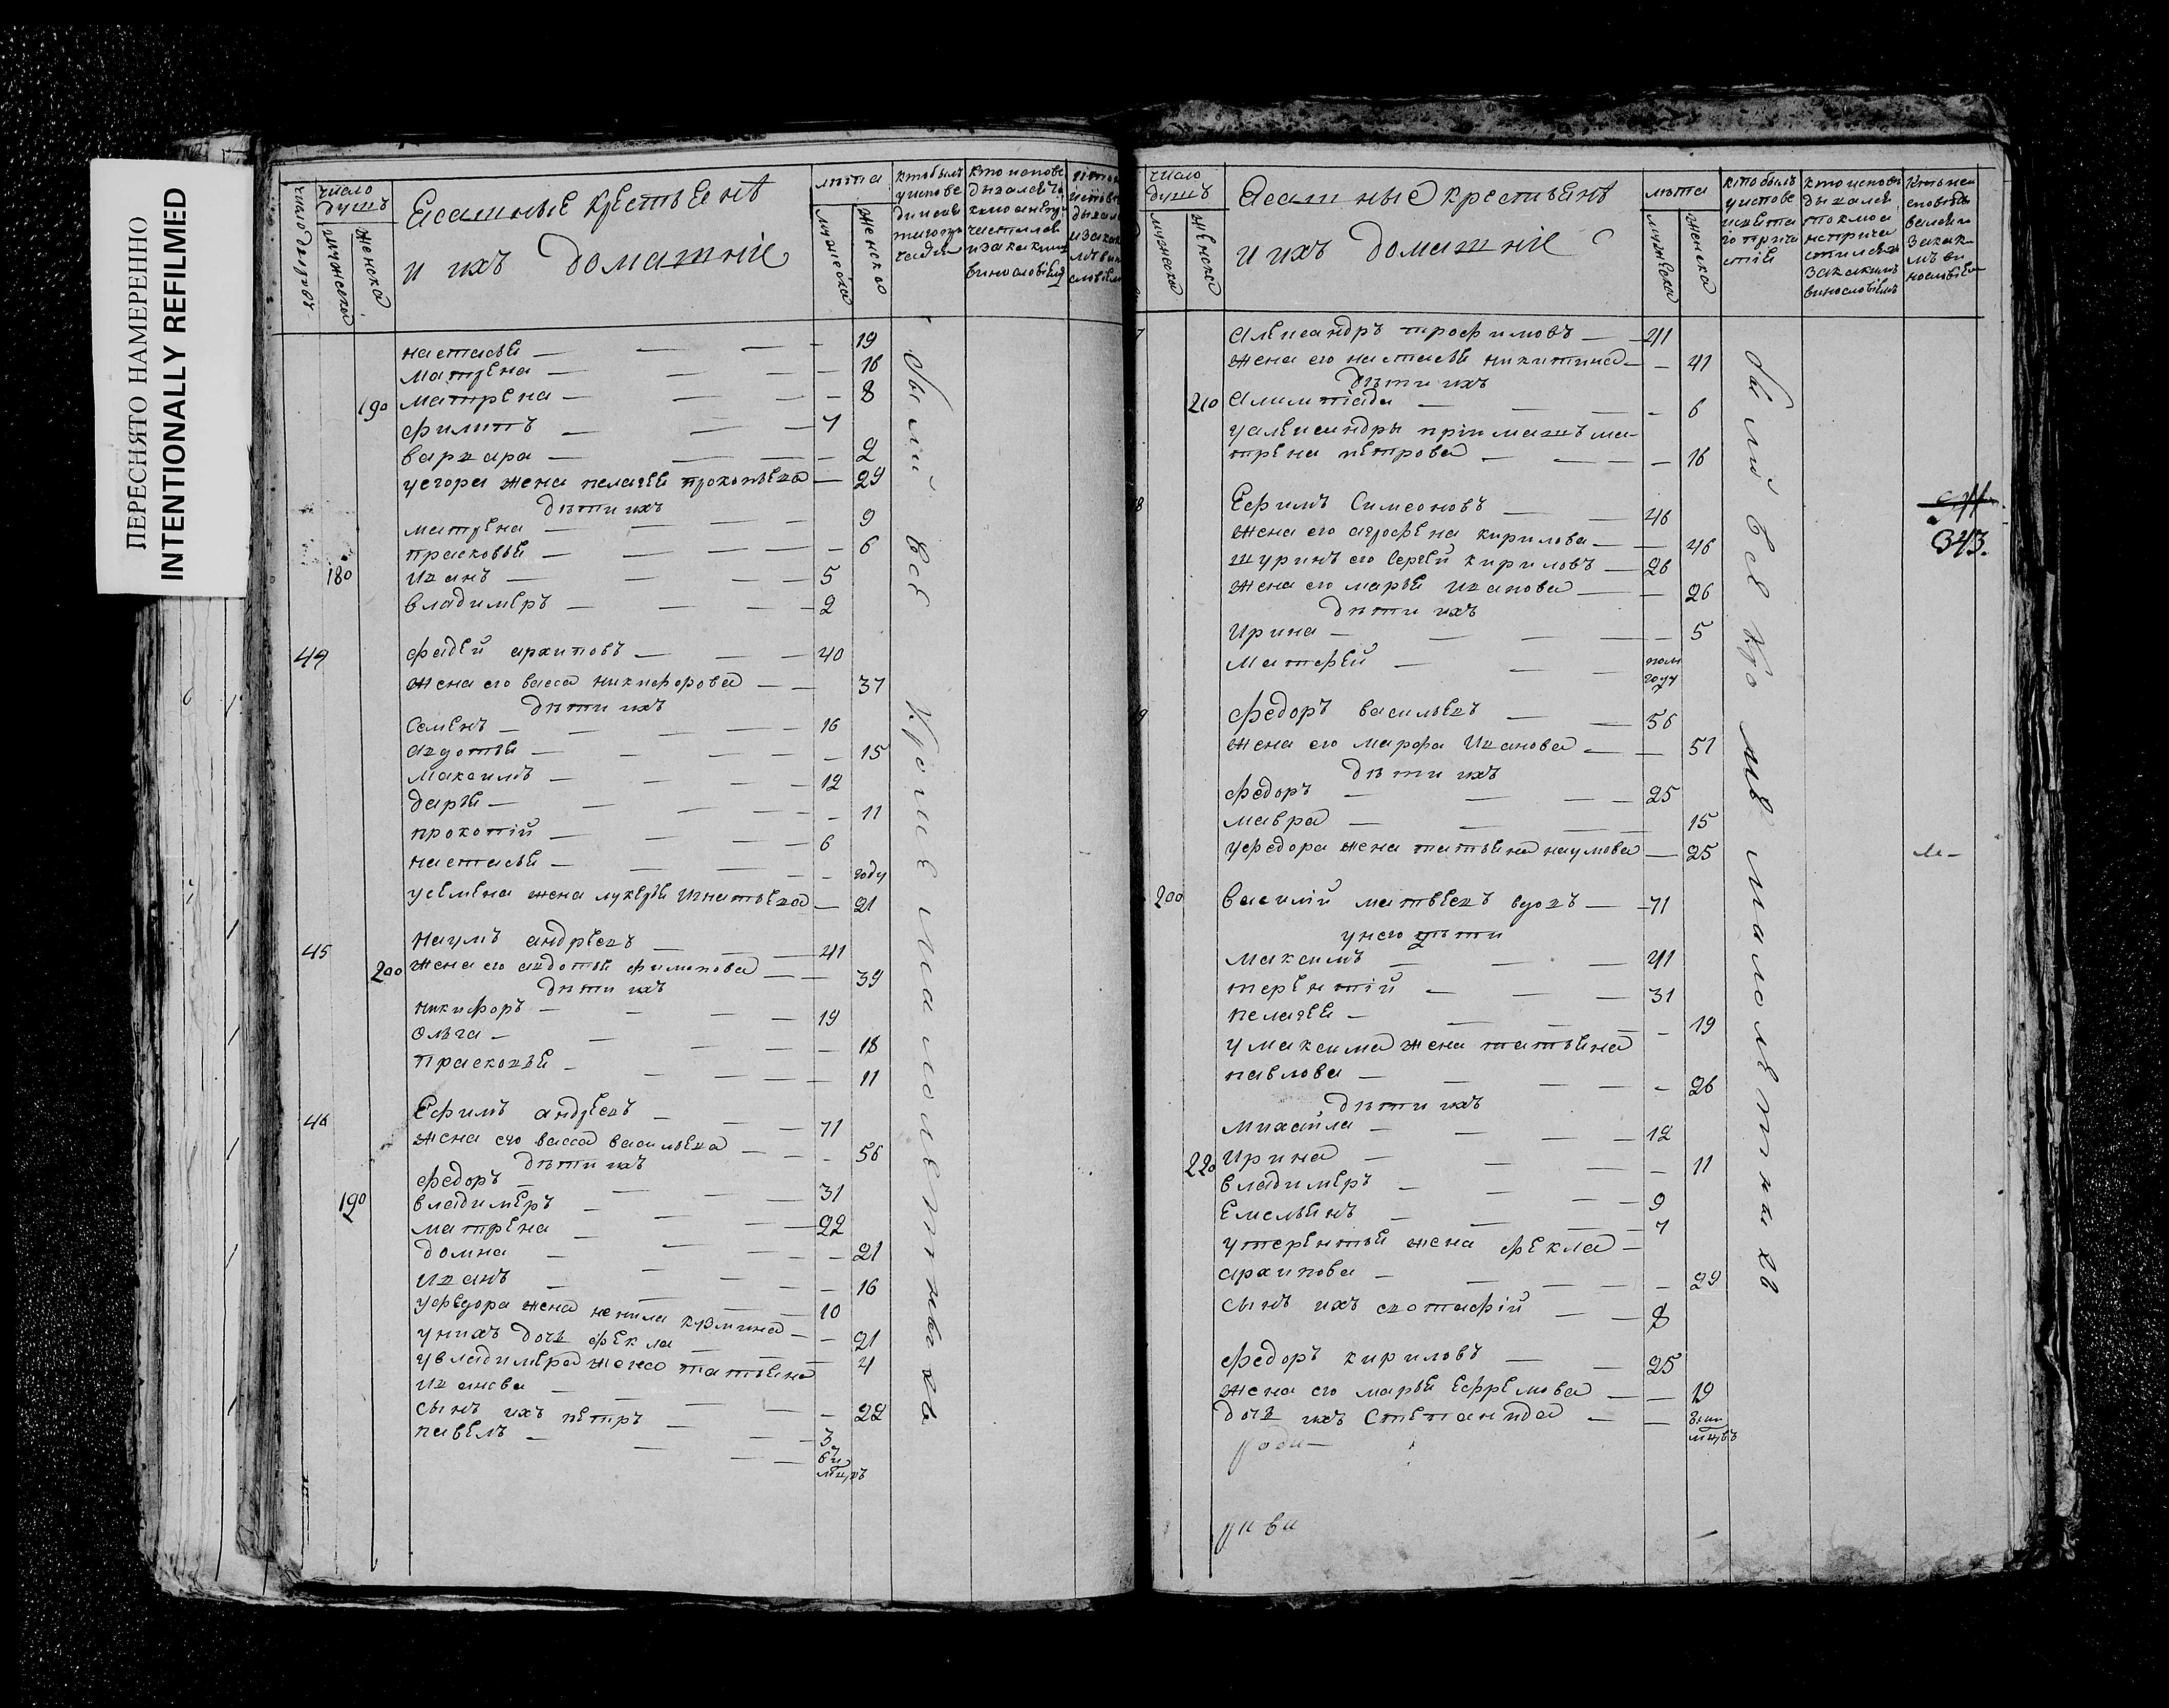 ПЕРЕСНЯТО НАМЕРЕННО
INTENTIONALLY REFILMED
число дворовъ
число душъ
мужеска
женска
Ясашные крестьянѣ
и ихъ домашніе
лѣта
мужеска
женско
настасья — 19
матрена — 16
190 матрена — 8
филипъ — 7
варвара — 2
у егора жена пелагея прокопьева — 29
дѣти ихъ
матрена — 9
прасковья — 6
180 иванъ — 5
владимеръ — 2
44 фадей архиповъ — 40
жена его васса никифорова — 37
дѣти ихъ
семенъ — 16
авдотья — 15
максимъ — 12
дарья — 11
прокопій — 6
настасья — году
у семена жена лукерья игнатьева — 21
45 наумъ андреевъ — 41
200 жена его авдотья филипова — 39
дѣти ихъ
никифоръ — 19
ольга — 18
прасковья — 11
46 Ефимъ андреевъ — 71
жена его васса васильева — 56
дѣти ихъ
федоръ — 31
190 владимеръ — 22
матрена — 21
домна — 16
иванъ — 10
у федора жена ненила кузмина — 21
у нихъ дочь фекла — 4
у владимера жена татьяна
иванова — 22
сынъ ихъ петръ — 3
павелъ —
были всѣ кроме малолетныхъ
число душъ
мужеска
женска
Ясашные крестьянѣ
и ихъ домашніе
лѣта
мужеска
женска
7 александръ трофимовъ — 41
жена его настасья никитина — 41
дѣти ихъ
210 — 6
у александры пріимышъ ма-
трена петрова — 16
8 Ефимъ Симеоновъ — 46
жена его агрофена кирилова — 46
шуринъ его сергей кириловъ — 26
жена его марья иванова — 26
дѣти ихъ
ирина — 5
матфей — пол году
9 федоръ васильевъ — 56
жена его марфа иванова — 51
дѣти ихъ
федоръ — 25
мавра — 15
у федора жена татьяна наумова — 25
200 василий матвеевъ вдовъ — 71
у него дѣти
максимъ — 41
терентій — 31
пелагея — 19
у максима жена татьяна
павлова — 26
дѣти ихъ
михайла — 12
220 ирина — 11
владимеръ — 9
Емельянъ — 7
у терентья жена фекла
архипова — 29
сынъ ихъ евстафій — 8
федоръ кириловъ — 25
жена его марья Ефремова — 19
дочь ихъ Степанида —
были всѣ кромѣ малолѣтныхъ
343.